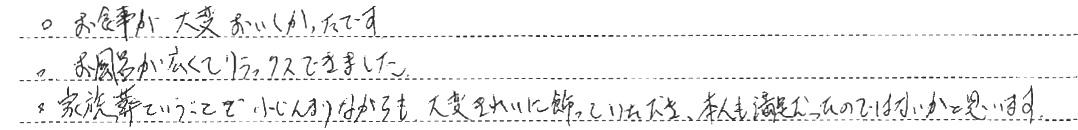 ○ お食事が大変おいしかったです
○ お風呂が広くてリラックスできました。
○ 家族葬ということで小じんまりながらも、大変きれいに飾っていただき、本人も満足だったのではないかと思います。